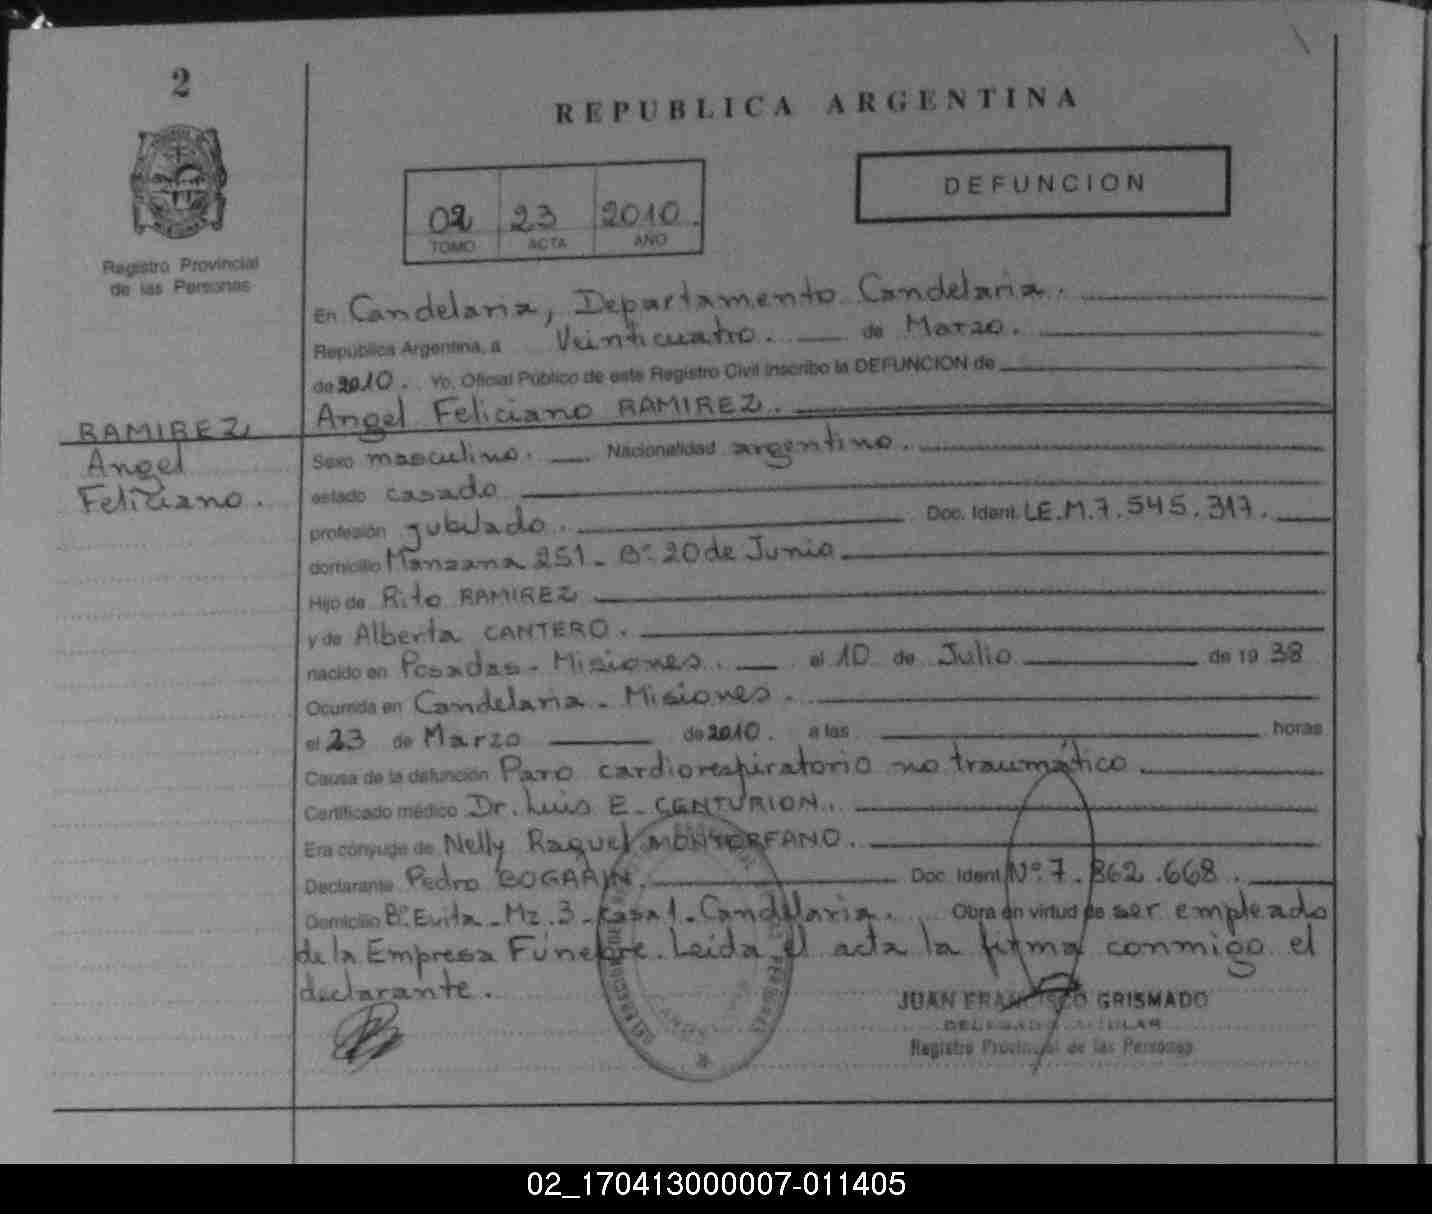 2
REPUBLICA ARGENTINA
DEFUNCION
02 23 2010.
TOMO ACTA AÑO
Registro Provincial
de las Personas
En Candelaria, Departamento Candelaria.
República Argentina, a Veinticuatro. de Marzo.
de 2010. Yo, Oficial Público de este Registro Civil inscribo la DEFUNCION de
Angel Feliciano RAMIREZ.
RAMIREZ
Angel
Feliciano.
Sexo masculino. Nacionalidad argentino.
estado casado
profesión jubilado. Doc. Ident. L.E.M.7.545.317.
domicilio Manzana 251 - Bº 20 de Junio
Hijo de Rito RAMIREZ
y de Alberta CANTERO.
nacido en Posadas - Misiones. el 10 de Julio de 19 38
Ocurrida en Candelaria - Misiones.
el 23 de Marzo de 2010. a las horas
Causa de la defunción Paro cardiorespiratorio no traumático
Certificado médico Dr. Luis E. CENTURION.
Era cónyuge de Nelly Raquel MONTORFANO.
Declarante Pedro BOGARIN. Doc. Ident. Nº.7.862.668.
Domicilio Bº. Evita - Mz. 3 - Casa 1 - Candelaria. Obra en virtud de ser empleado
de la Empresa Fúnebre. Leída el acta la firma conmigo el
declarante.
JUAN FRANCISCO GRISMADO
DELEGADO TITULAR
Registro Provincial de las Personas
02_170413000007-011405